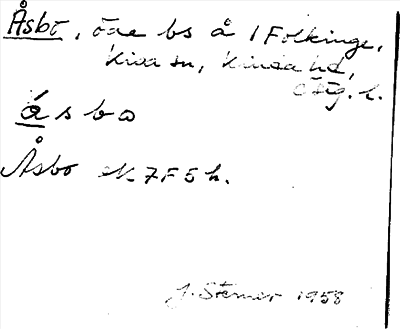 Åsbo, öde bs å 1 Folkinge,
Kisa sn, Kinda hd,
Östg. l.
åsbo
Åsbo ek 7F5h.
J. Sterner 1958